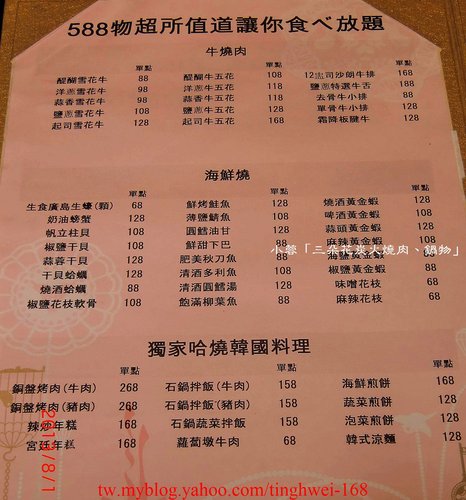 588物超所值道讓你食べ放題
牛燒肉
單點 單點 單點
醍醐雪花牛 88 醍醐牛五花 108 12盎司沙朗牛排 168
洋蔥雪花牛 98 洋蔥牛五花 118 鹽蔥特選牛舌 188
蒜香雪花牛 98 蒜香牛五花 118 去骨牛小排 88
鹽蔥雪花牛 108 鹽蔥牛五花 128 單骨牛小排 128
起司雪花牛 128 起司牛五花 168 霜降板腱牛 128
海鮮燒
單點 單點 單點
生食廣島生蠔(顆) 68 鮮烤鮭魚 128 燒酒黃金蝦 88
奶油螃蟹 128 薄鹽鯖魚 108 啤酒黃金蝦 88
帆立柱貝 108 圓鱈油甘 128 蒜頭黃金蝦 88
椒鹽干貝 108 鮮甜下巴 128 麻辣黃金蝦 88
蒜蓉干貝 128 肥美秋刀魚 88 黃金蝦 88
干貝蛤蠣 128 清酒多利魚 108 椒鹽黃金蝦 88
燒酒蛤蠣 88 清酒圓鱈湯 128 味噌花枝 68
椒鹽花枝軟骨 108 飽滿柳葉魚 88 麻辣花枝 68
小蓉「三朵花炭火燒肉、鍋物」
獨家哈燒韓國料理
單點 單點 單點
銅盤烤肉(牛肉) 268 石鍋拌飯(牛肉) 158 海鮮煎餅 168
銅盤烤肉(豬肉) 268 石鍋拌飯(豬肉) 158 蔬菜煎餅 128
辣炒年糕 168 石鍋蔬菜拌飯 158 泡菜煎餅 128
宮廷年糕 168 蘿蔔墩牛肉 68 韓式涼麵 128
2013/8/1
tw.myblog.yahoo.com/tinghwei-168